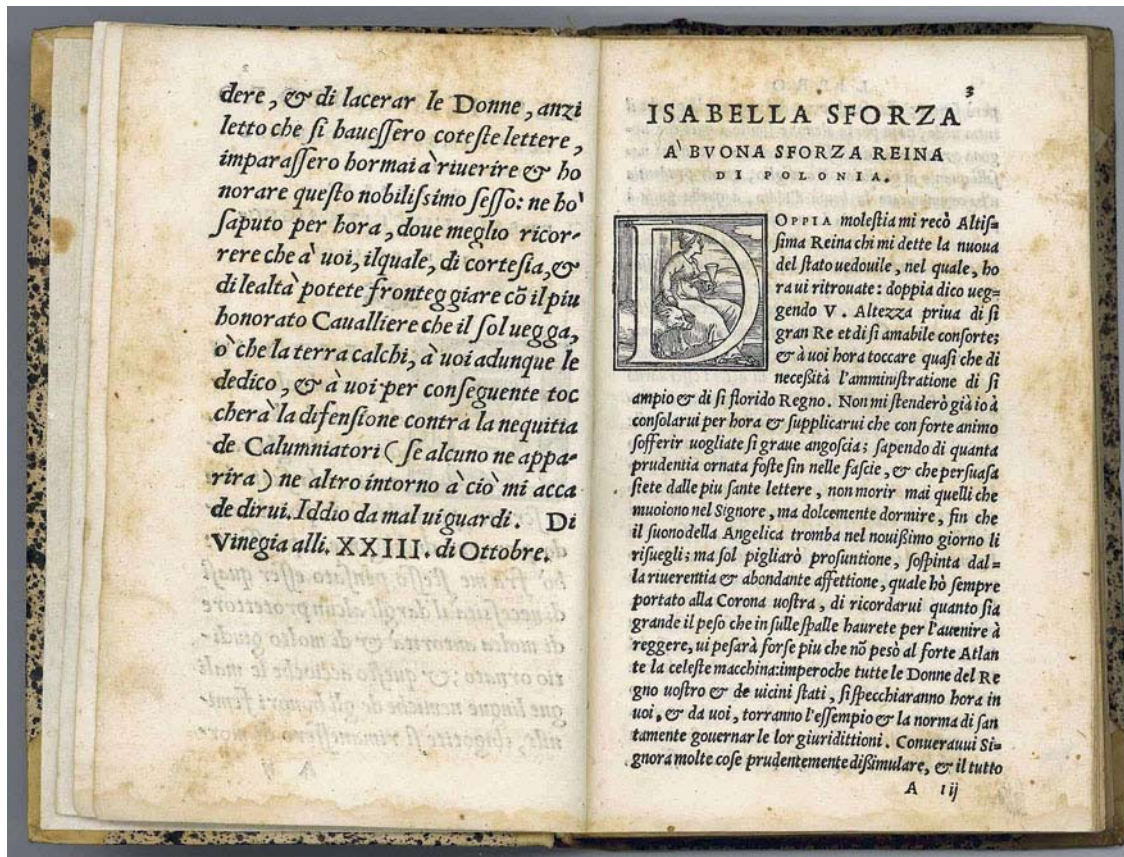 2
dere, & di lacerar le Donne, anzi
letto che si hauessero coteste lettere,
imparassero hormai à riuerire & ho
norare questo nobilissimo sesso: ne hò
saputo per hora, doue meglio ricor-
rere che à uoi, ilquale, di cortesia, &
di lealtà potete fronteggiare cõ il piu
honorato Caualliere che il sol uegga,
ò che la terra calchi, à uoi adunque le
dedico, & à uoi per conseguente toc
cherà la difensione contra la nequitia
de Calumniatori (se alcuno ne appa-
rira) ne altro intorno à ciò mi acca
de dirui. Iddio da mal ui guardi. Di
Vinegia alli. XXIII. di Ottobre.
3
ISABELLA SFORZA
A' BVONA SFORZA REINA
DI POLONIA.
DOPPIA molestia mi recò Altis=
sima Reina chi mi dette la nuoua
del stato uedouile, nel quale, ho
ra ui ritrouate: doppia dico ueg=
gendo V. Altezza priua di sì
gran Re et di sì amabile consorte;
& à uoi hora toccare quasi che di
necessità l'amministratione di sì
ampio & di sì florido Regno. Non mi stenderò già io à
consolarui per hora & supplicarui che con forte animo
sofferir uogliate sì graue angoscia; sapendo di quanta
prudentia ornata foste sin nelle fascie, & che persuasa
siete dalle piu sante lettere, non morir mai quelli che
muoiono nel Signore, ma dolcemente dormire, fin che
il suono della Angelica tromba nel nouissimo giorno li
risuegli; ma sol pigliarò prosuntione, sospinta dal=
la riuerentia & abondante affettione, quale hò sempre
portato alla Corona uostra, di ricordarui quanto sia
grande il peso che in sulle spalle haurete per l'auenire à
reggere, ui pesarà forse piu che nõ pesò al forte Atlan
te la celeste macchina: imperoche tutte le Donne del Re
gno uostro & de uicini stati, si specchiaranno hora in
uoi, & da uoi, torranno l'essempio & la norma di san
tamente gouernar le lor giuridittioni. Conuerauui Si=
gnora molte cose prudentemente dissimulare, & il tutto
A iij